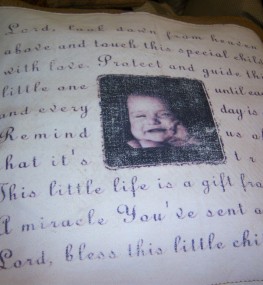 Lord, look down from heaven
above and touch this special child
with love. Protect and guide this
little one until eac
and every day is
Remind us of
hat it's tr
This little life is a gift fro
A miracle You've sent a
Lord, bless this little chi